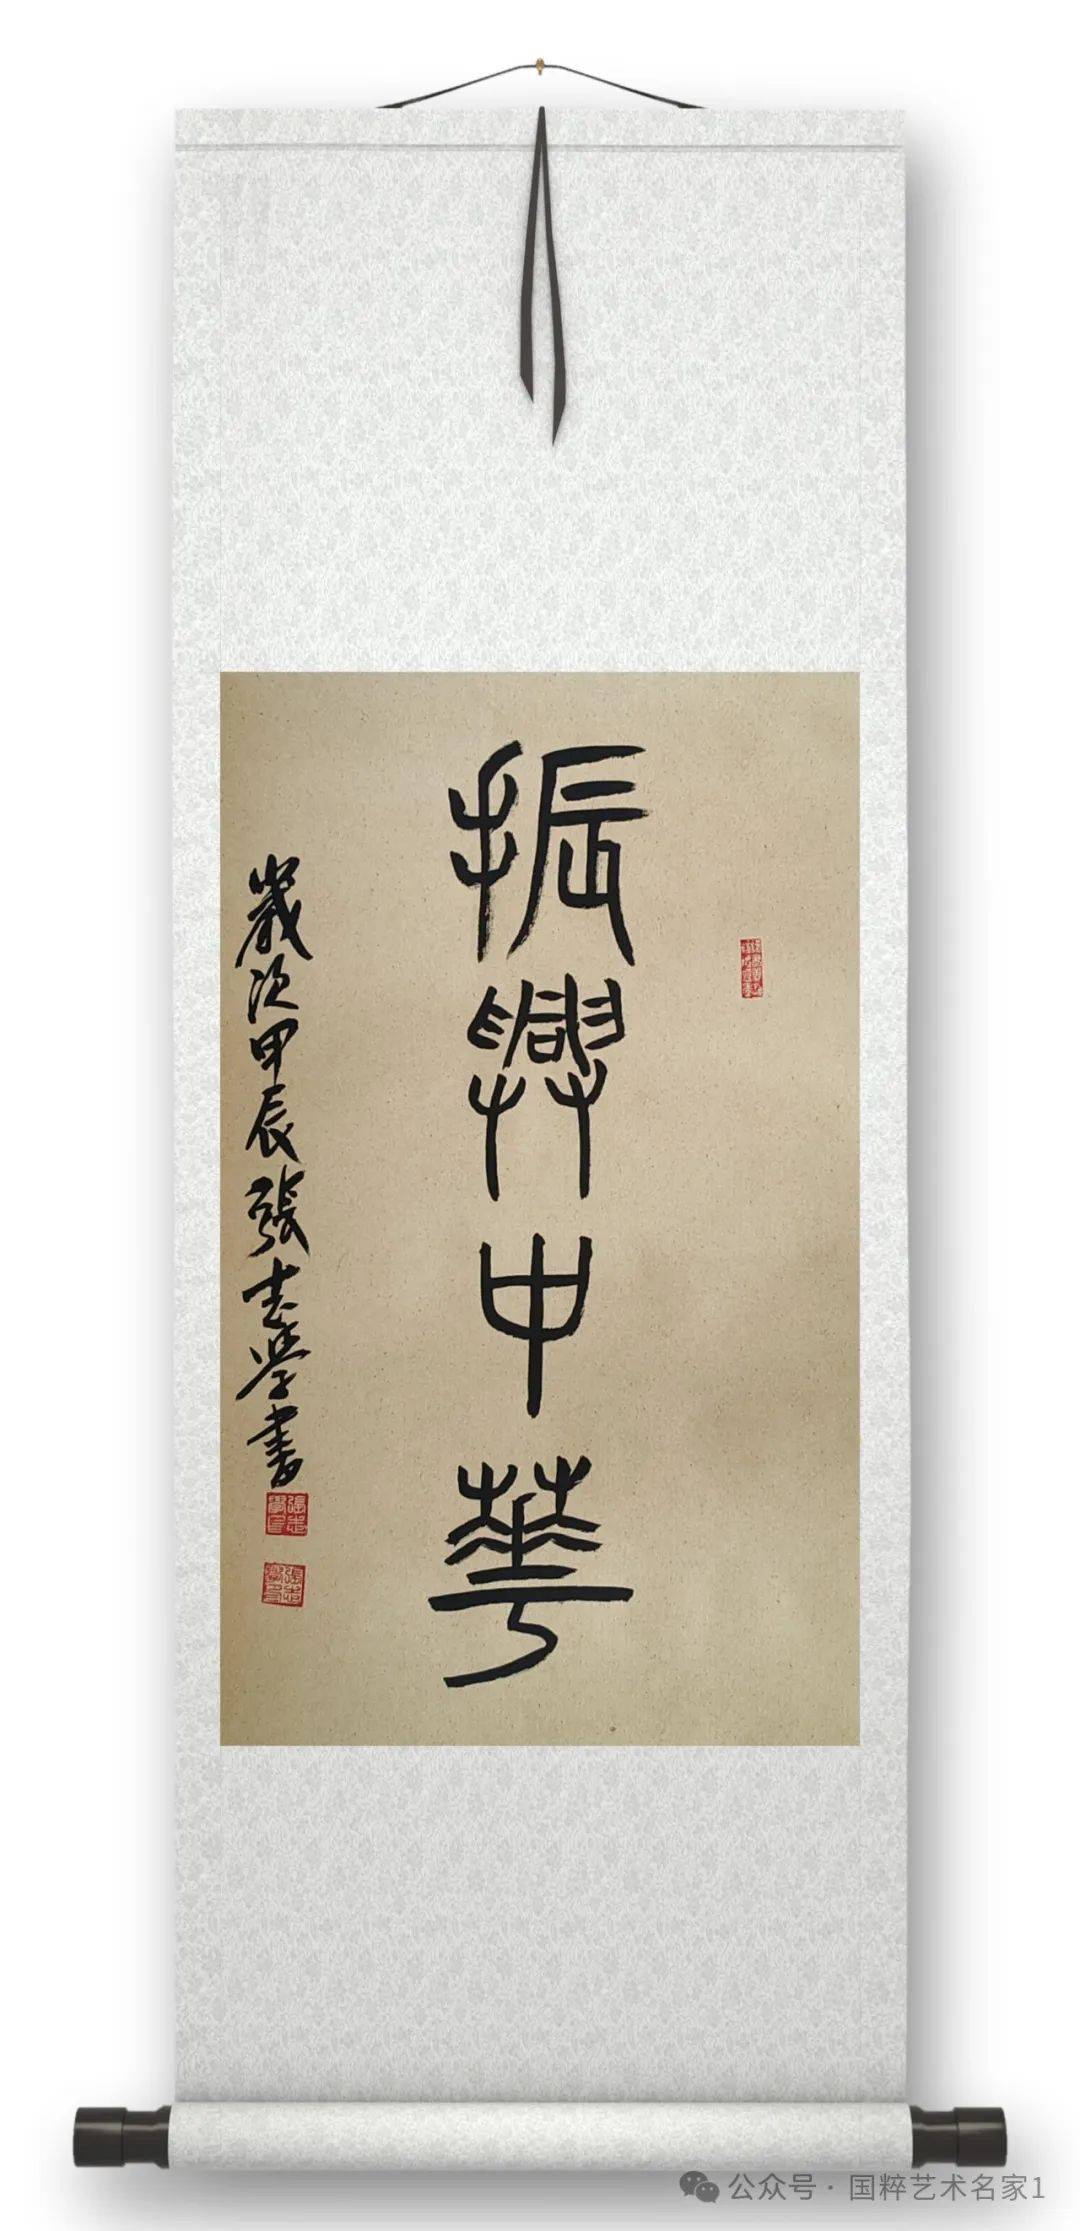 振興中華
歲次甲辰張志學書
張志學印
公众号·国粹艺术名家1